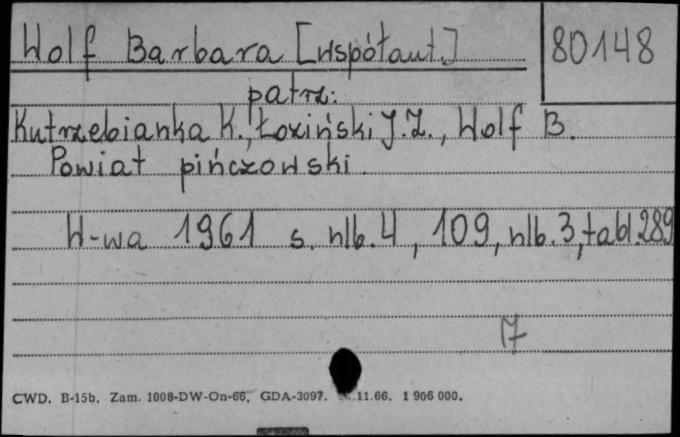 Wolf Barbara [współaut.]
80148
patrz:
Kutrzebianka K., Łoziński J.Z., Wolf B.
Powiat pińczowski.
W-wa 1961 s. nlb. 4, 109, nlb. 3, tabl. 289
17
CWD. B-15b. Zam. 1008-DW-On-66. GDA-3097. .11.66. 1 906 000.